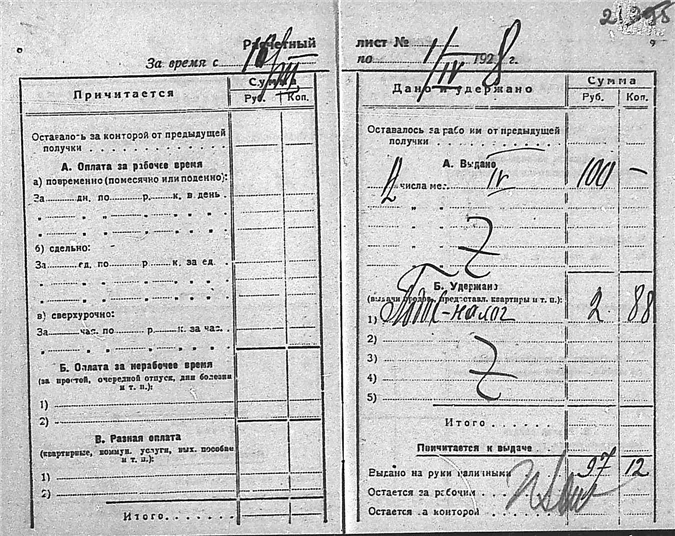 Расчетный лист №
За время с 16/III по 1/IV 1928 г.
Причитается
Сумма
Руб. Коп.
Оставалось за конторой от предыдущей
получки
А. Оплата за рабочее время
а) повременно (помесячно или поденно):
За дн. по р. к. в день
„ „ „ „ „ „
„ „ „ „ „ „
б) сдельно:
За ед. по р. к. за ед.
„ „ „ „ „ „
„ „ „ „ „ „
в) сверхурочно:
За час. по р. к. за час.
„ „ „ „ „ „
Б. Оплата за нерабочее время
(за простой, очередной отпуск, дни болезни
и т. п.):
1)
2)
В. Разная оплата
(квартирные, коммун. услуги, вых. пособие
и т. п.):
1)
2)
Итого
Дано и удержано
Сумма
Руб. Коп.
Оставалось за рабочим от предыдущей
получки
А. Выдано
2 числа мес. IV 100 —
„ „
„ „
„ „
„ „
Б. Удержано
(выдачи продов., представл. квартиры и т. п.):
1) Подох-налог 2 88
2)
3)
4)
5)
Итого
Причитается к выдаче
Выдано на руки наличными 97 12
Остается за рабочим
Остается за конторой